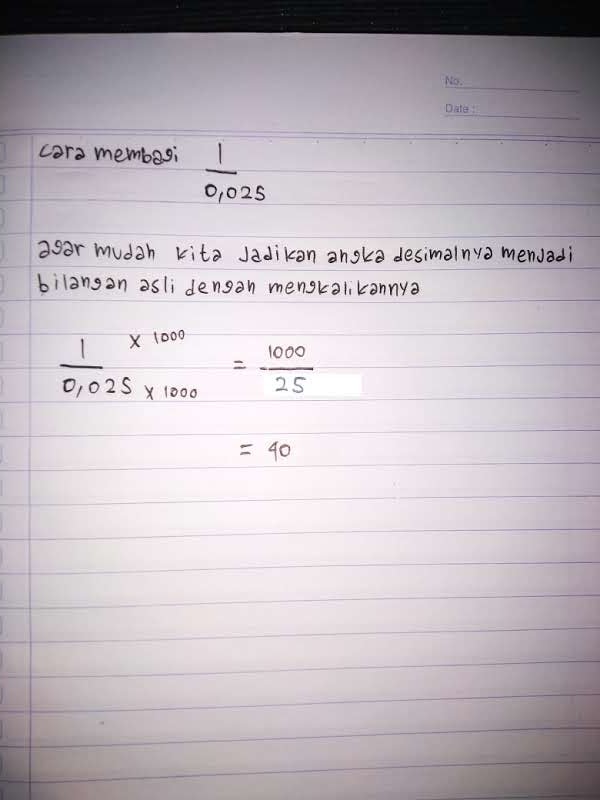 No.
Date :
cara membagi 1
0,025
agar mudah kita jadikan angka desimalnya menjadi
bilangan asli dengan mengkalikannya
1 x 1000 = 1000
0,025 x 1000 25
= 40